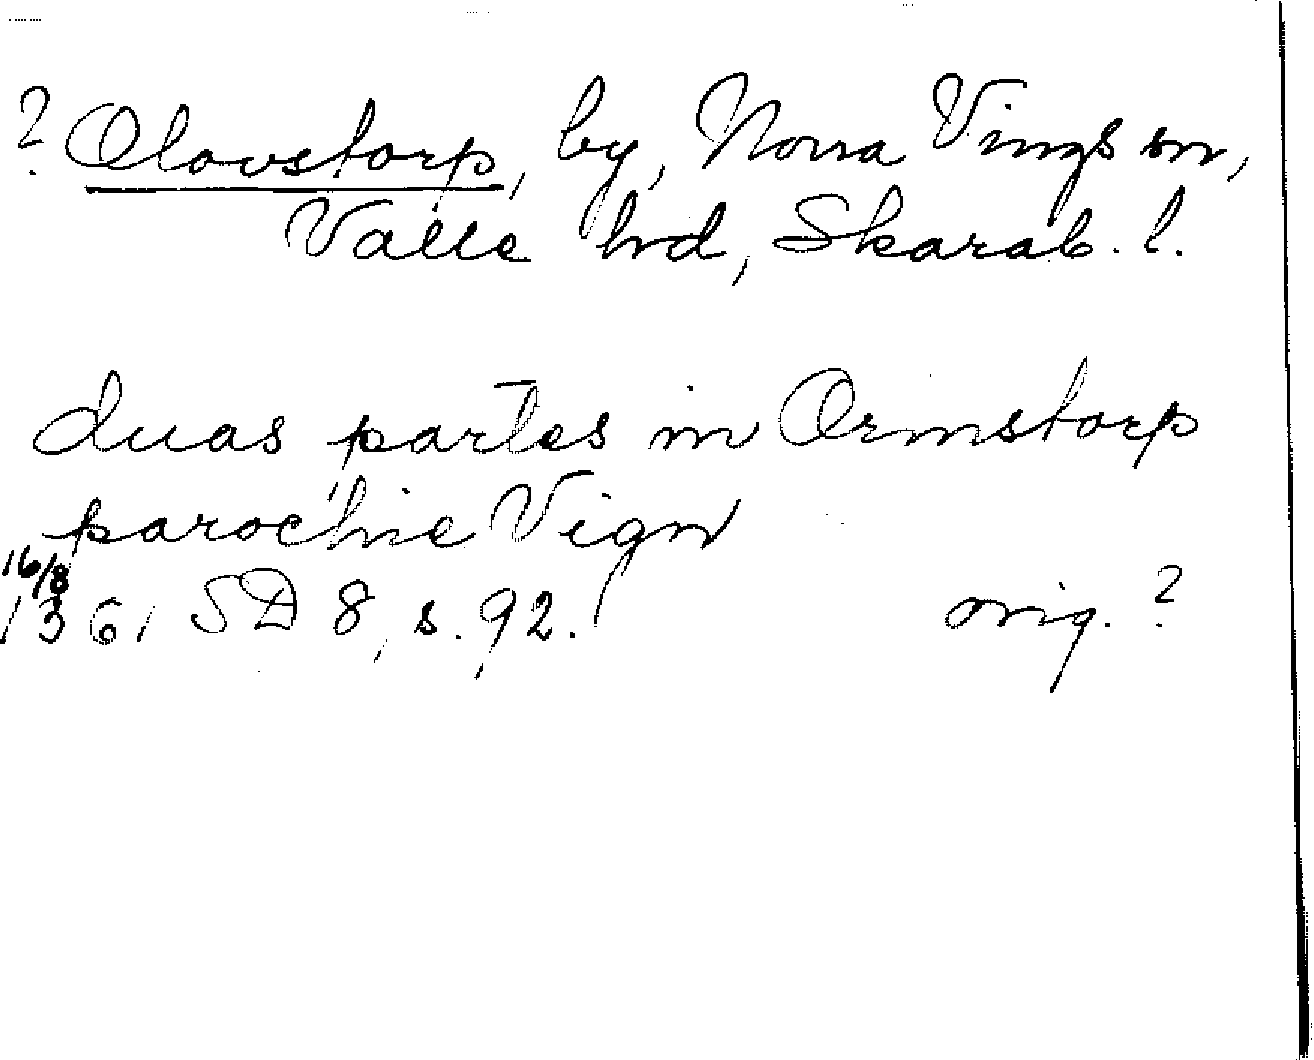 ? Olovstorp, by, Norra Vings sn,
Valle hd, Skarab. l.
duas partes in Ormstorp
parochie Vign
16/8
1361 SD 8, s. 92. orig. ?